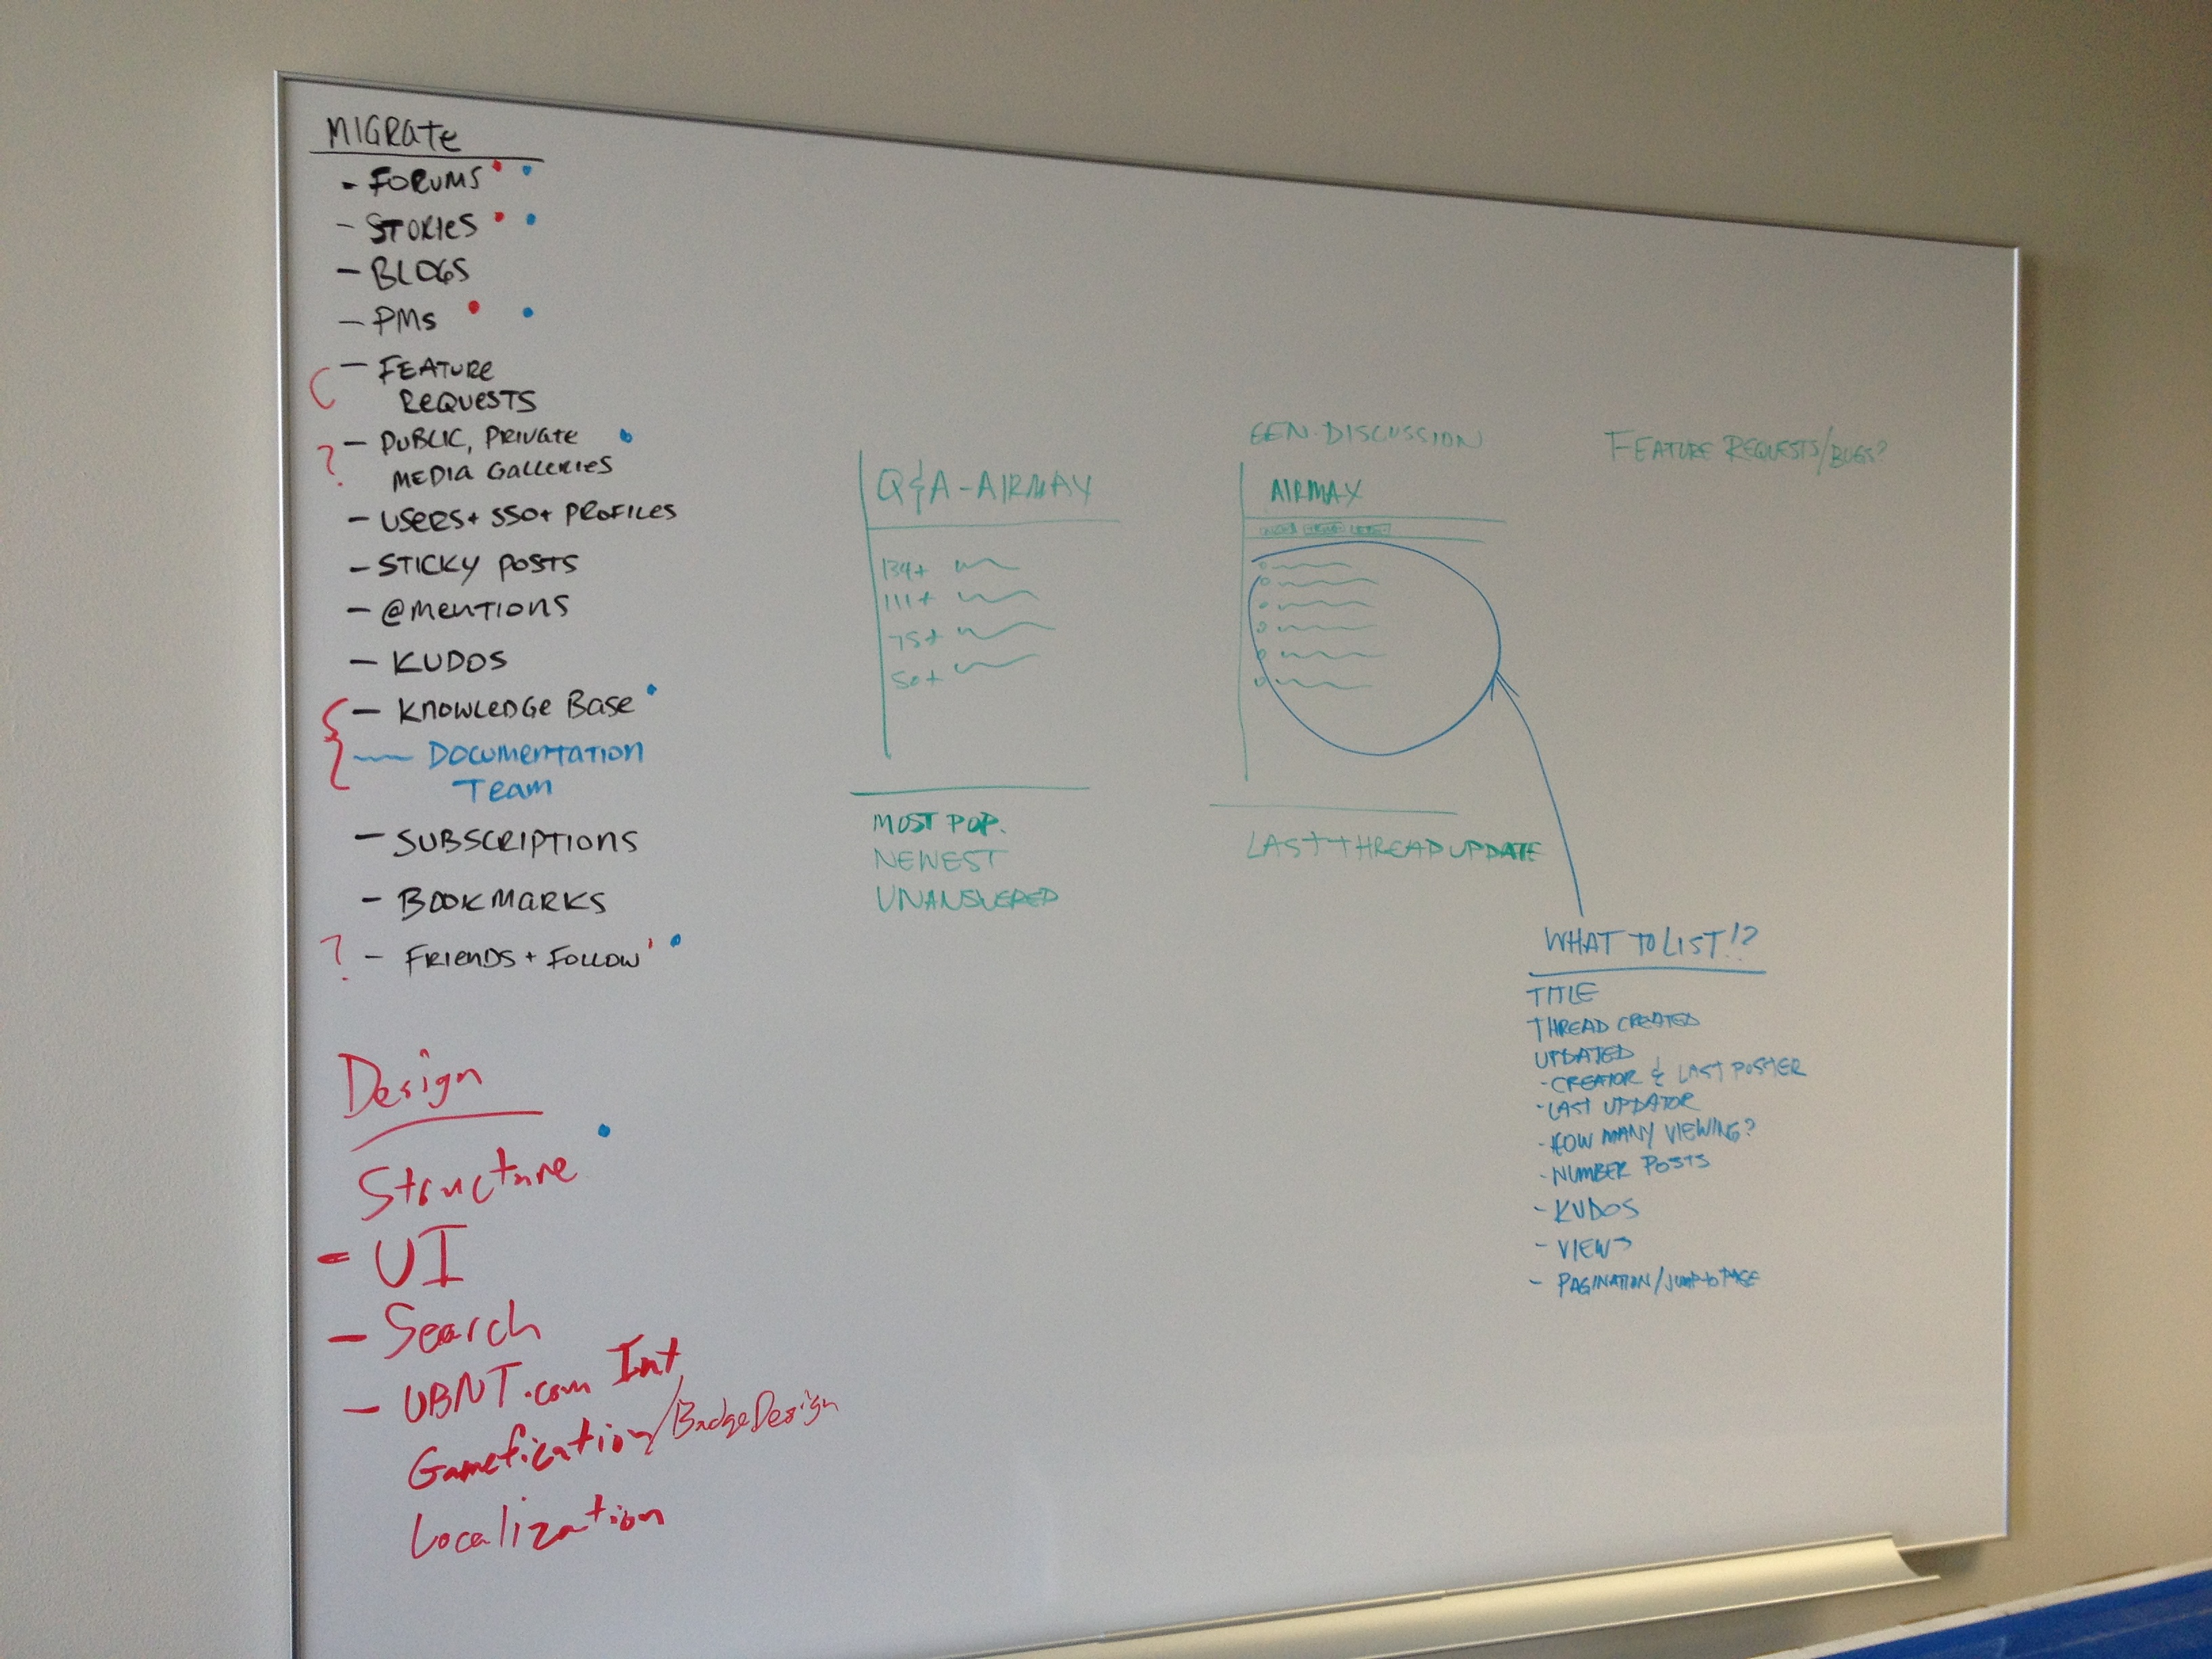 MIGRate
- FORUMS
- STORIES
- BLOGS
- PMs
- FEATURE
REQUESTS
? - PUBLIC, PRIVate
MEDIA GALLERIES
- USERS + SSO + PROFILES
- STICKY POSTS
- @MENTIONS
- KUDOS
- KNOWLEDGE Base
- DOCUMENTATION
Team
- SUBSCRIPTIONS
- BOOKMARKS
? - FRIENDS + FOLLOW
Design
Structure
- UI
- Search
- UBNT.com Int
Gamefication/BadgeDesign
Localization
Q&A - AIRMAX
134+
111+
75+
50+
MOST POP.
NEWEST
UNANSWERED
GEN. DISCUSSION
AIRMAX
LAST THREAD UPDATE
FEATURE REQUESTS/BUGS?
WHAT TO LIST!?
TITLE
THREAD CREATED
UPDATED
- CREATOR & LAST POSTER
- LAST UPDATOR
- HOW MANY VIEWING?
- NUMBER POSTS
- KUDOS
- VIEWS
- PAGINATION/JUMP to PAGE